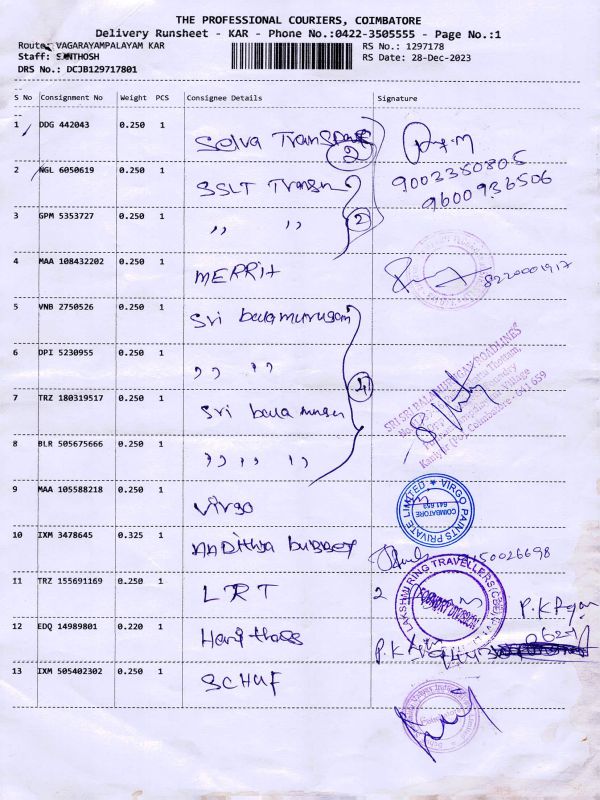 THE PROFESSIONAL COURIERS, COIMBATORE
Delivery Runsheet - KAR - Phone No.:0422-3505555 - Page No.:1
Route: VAGARAYAMPALAYAM KAR RS No.: 1297178
Staff: SANTHOSH RS Date: 28-Dec-2023
DRS No.: DCJB129717801
S No Consignment No Weight PCS Consignee Details Signature
1 DDG 442043 0.250 1 Selva Transport
2
2 NGL 6050619 0.250 1 SSLT Transn 9003380805
9600936506
3 GPM 5353727 0.250 1 ,, ,, 2
4 MAA 108432202 0.250 1 MERRIT 8220001917
5 VNB 2750526 0.250 1 Sri balamurugan
6 DPI 5230955 0.250 1 ,, ,,
4
7 TRZ 180319517 0.250 1 Sri bala murugan
SRI SRI BALAMURUGAN ROADLINES
Coimbatore - 641 659
8 BLR 505675666 0.250 1 ,, ,, ,,
9 MAA 105588218 0.250 1 Virgo
VIRGO PAINTS PRIVATE LIMITED
COIMBATORE
641 659
10 IXM 3478645 0.325 1
11 TRZ 155691169 0.250 1 LRT 2
LAKSHMI RING TRAVELLERS (CBE)
FOUNDRY DIVISION
P.K Rajan
12 EDQ 14989801 0.220 1 P.K
13 IXM 505402302 0.250 1 SCHUF